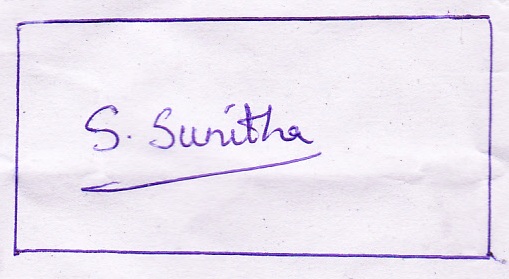 S. Sunitha